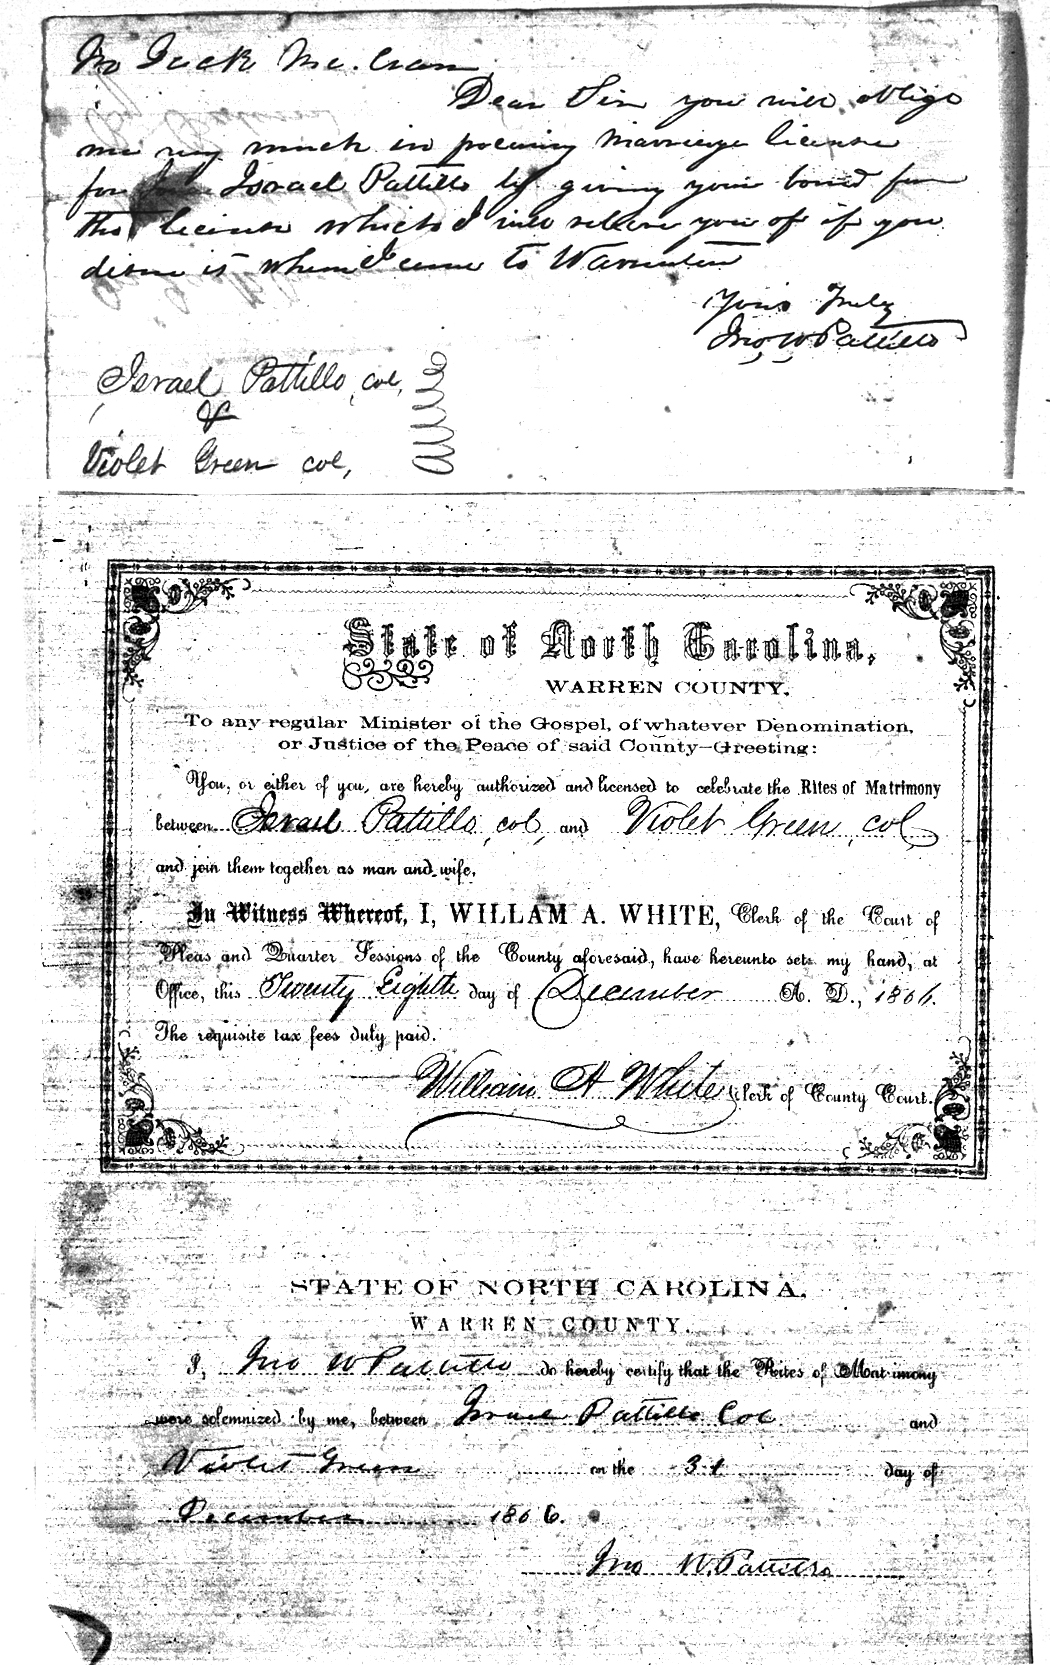 Mr Jack Mc. Cram
Dear Sir you will oblige
me very much in procuring Marriage license
for Israel Pattillo by giving your bond for
the license which I will relieve you of if you
desire it when I come to Warrenton
Yours Truly
Jno W Pattillo
Israel Pattillo, col,
&
Violet Green col,
State of North Carolina,
WARREN COUNTY.
To any regular Minister of the Gospel, of whatever Denomination,
or Justice of the Peace of said County—Greeting:
You, or either of you, are hereby authorized and licensed to celebrate the Rites of Matrimony
between Israel Pattillo, col, and Violet Green, col
and join them together as man and wife.
In Witness Whereof, I, WILLAM A. WHITE, Clerk of the Court of
Pleas and Quarter Sessions of the County aforesaid, have hereunto set my hand, at
Office, this Twenty Eighth day of December A. D., 1866.
The requisite tax fees duly paid.
William A White Clerk of County Court.
STATE OF NORTH CAROLINA.
WARREN COUNTY.
I, Jno W Pattillo do hereby certify that the Rites of Matrimony
were solemnized by me, between Israel Pattillo Col and
Violet Green on the 31 day of
December 1866.
Jno W. Pattillo